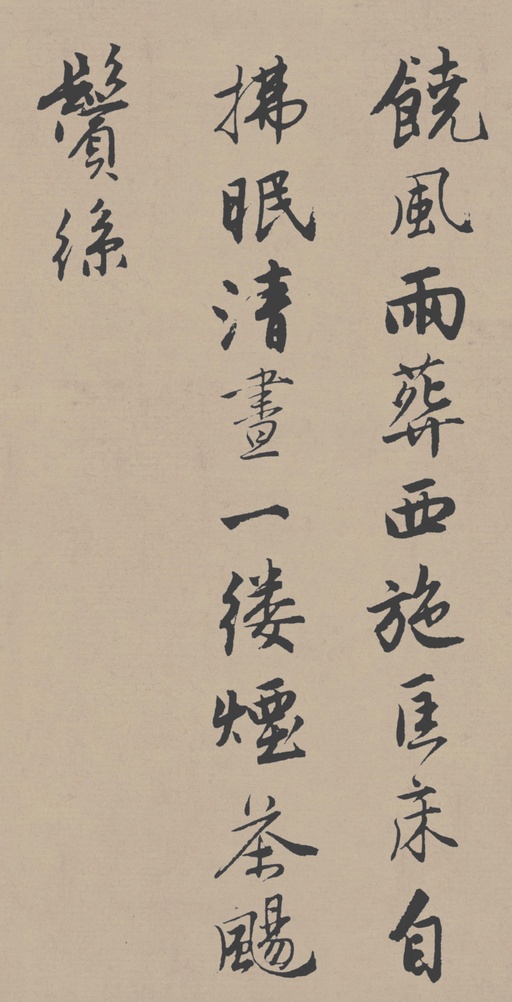 饒風雨葬西施匡床自
拂眠清晝一縷煙茶颺
鬢絲